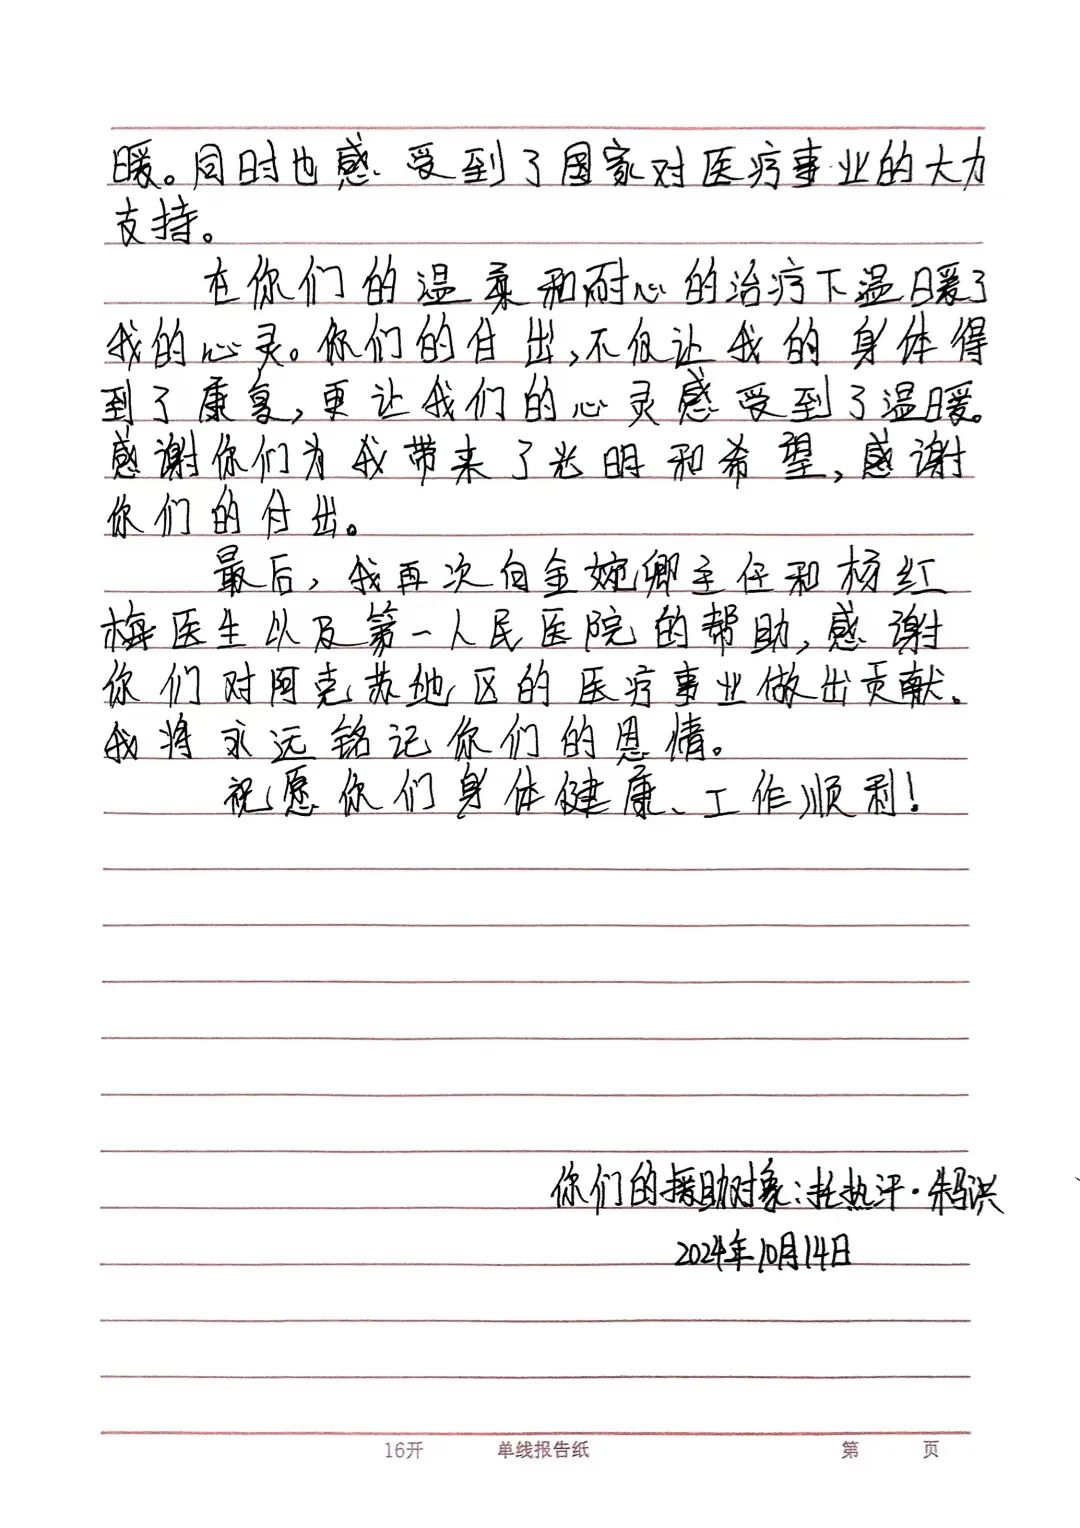 暖。同时也感受到了国家对医疗事业的大力
支持。
在你们的温柔和耐心的治疗下温暖了
我的心灵。你们的付出,不仅让我的身体得
到了康复,更让我们的心灵感受到了温暖。
感谢你们为我带来了光明和希望,感谢
你们的付出。
最后,我再次向金婉卿主任和杨红
梅医生以及第一人民医院的帮助,感谢
你们对阿克苏地区的医疗事业做出贡献。
我将永远铭记你们的恩情。
祝愿你们身体健康、工作顺利!
你们的援助对象:托热汗·朱洪
2024年10月14日
16开 单线报告纸 第 页